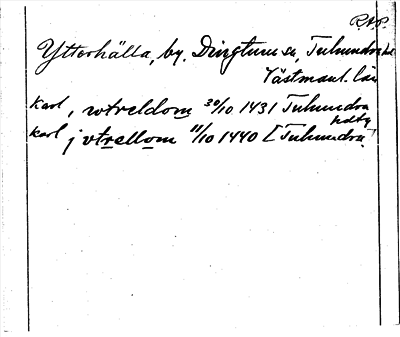 R.A.P.
Ytterhälla, by. Dingtuna sn, Tuhundra hd
Västmanl. län
Karl, wtreldom 30/10 1431 Tuhundra
hdtg
Karl j vtrellom 11/10 1440 [Tuhundra]